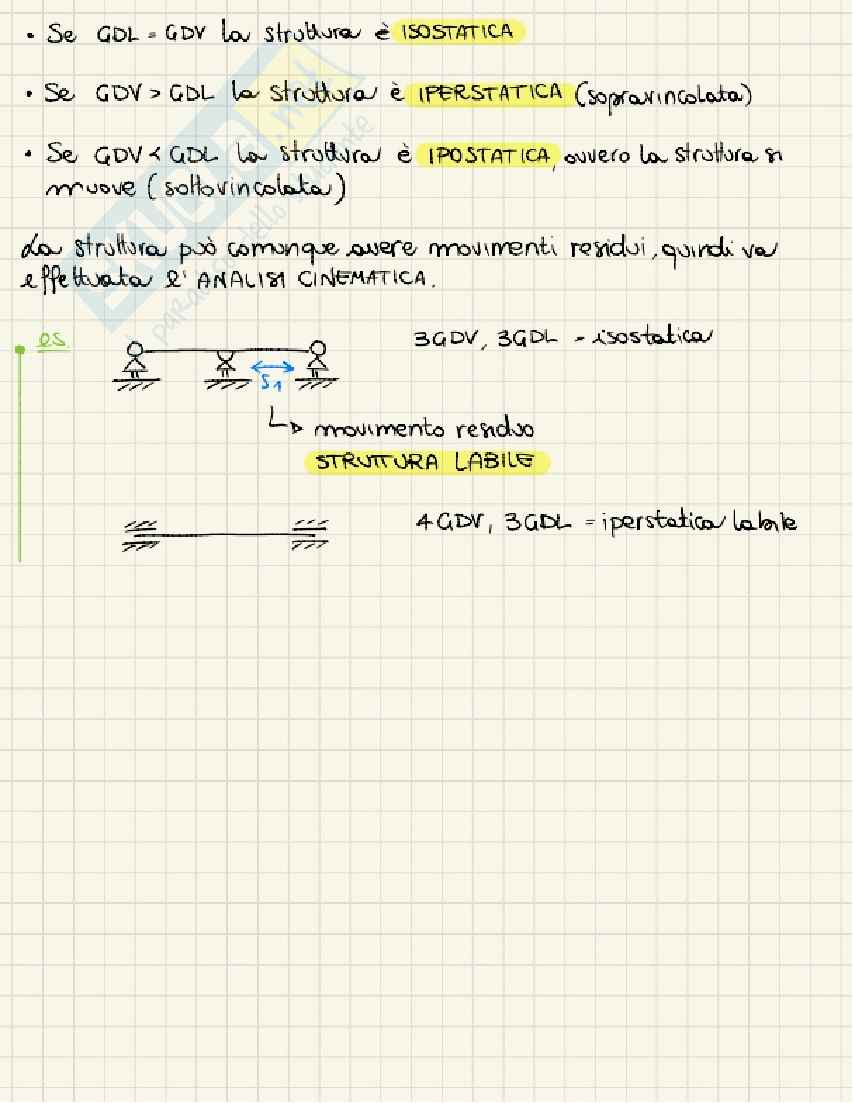 • Se GDL = GDV la struttura è ISOSTATICA
• Se GDV > GDL la struttura è IPERSTATICA (sopravincolata)
• Se GDV < GDL la struttura è IPOSTATICA, ovvero la struttura si
muove (sottovincolata)
La struttura può comunque avere movimenti residui, quindi va
effettuata l'ANALISI CINEMATICA.
es.
3GDV, 3GDL - isostatica
S1
movimento residuo
STRUTTURA LABILE
4GDV, 3GDL = iperstatica labile